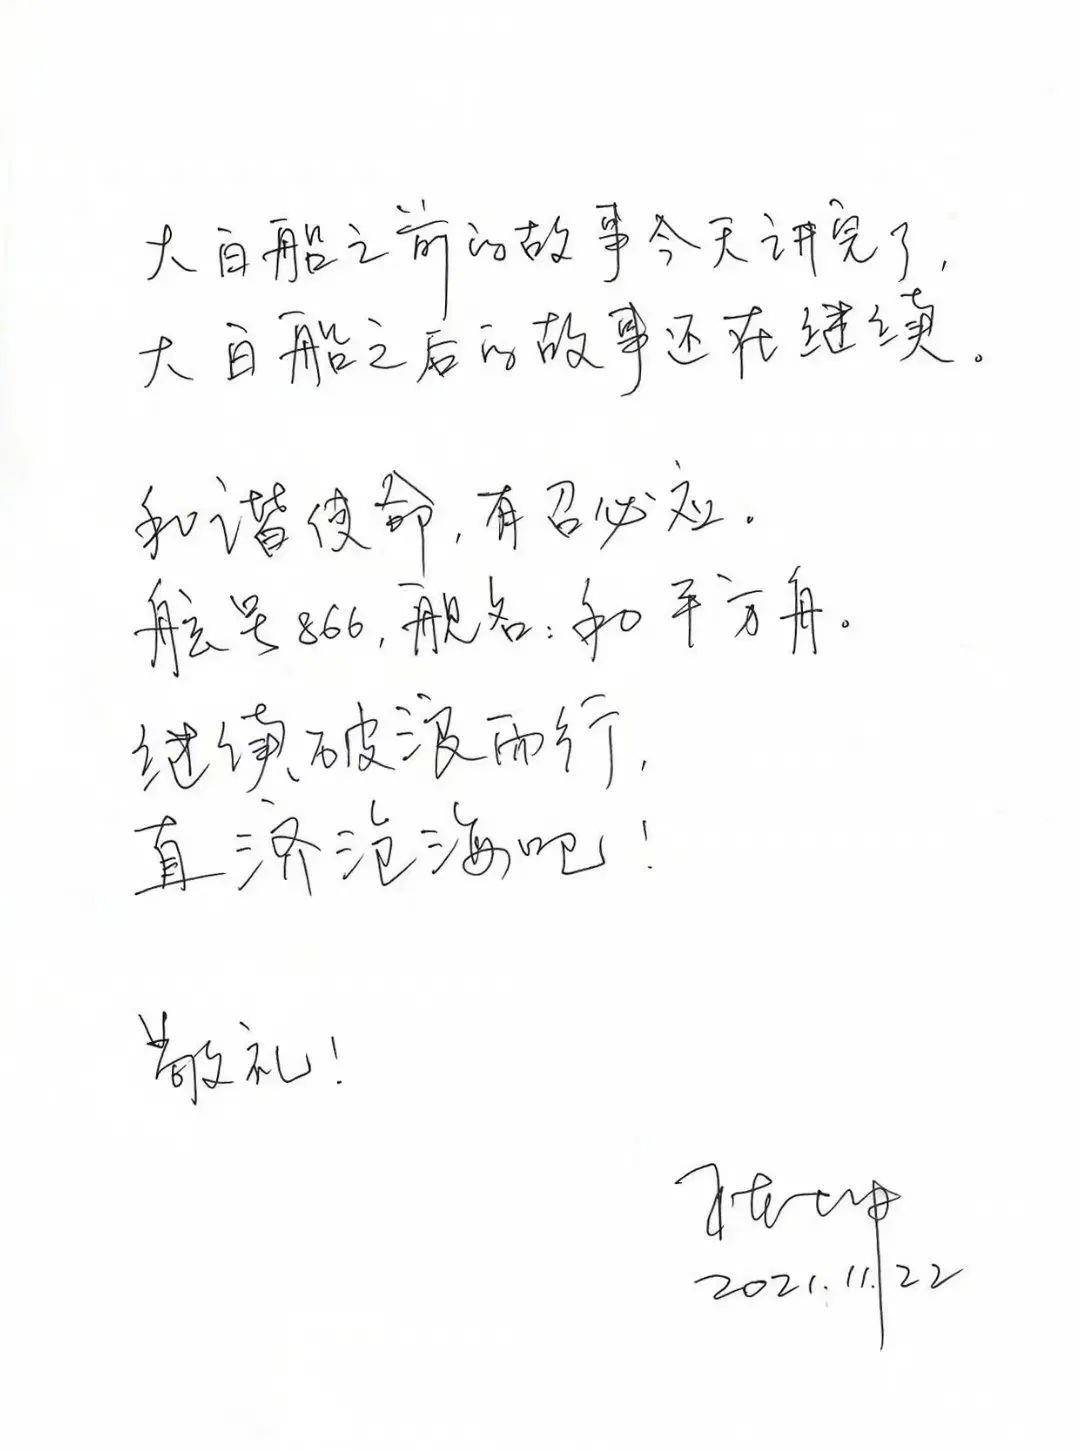 大白船之前的故事今天讲完了,
大白船之后的故事还在继续。
和谐使命,有召必应.
舷号866,舰名:和平方舟。
继续破浪而行,
直济沧海吧!
敬礼!
2021.11.22